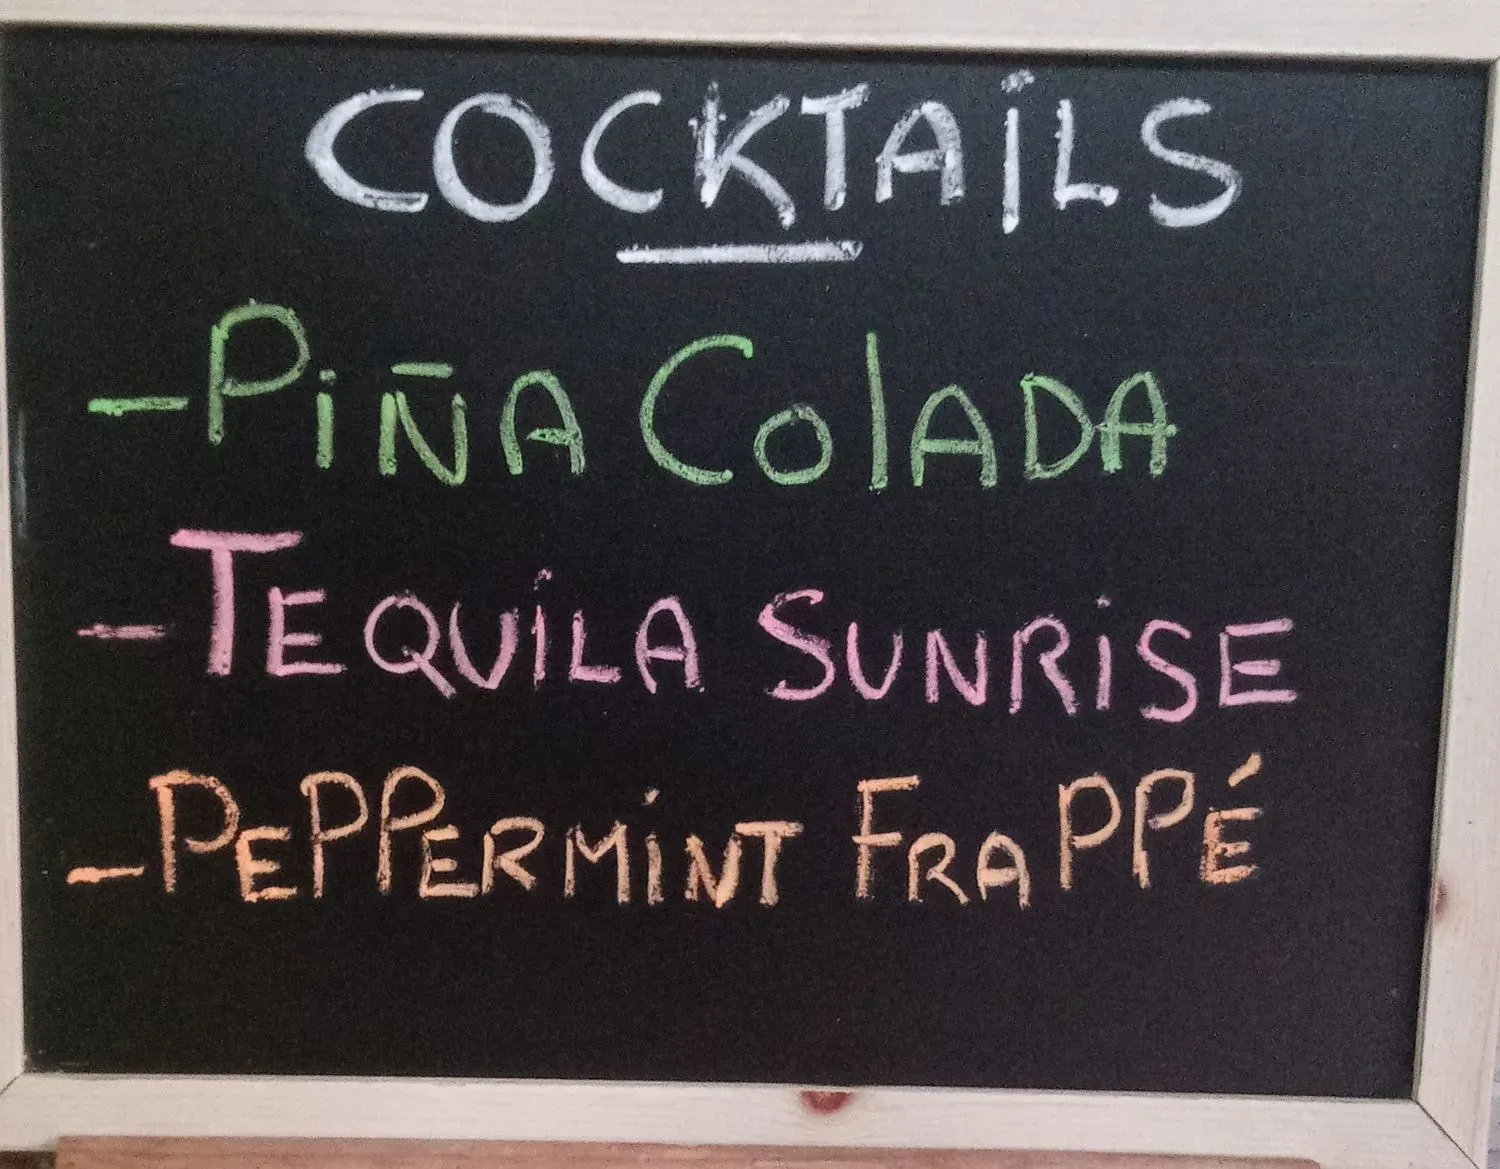 COCKTAiLS
- PiÑA COlADA
- TEQUiLA SUNRiSE
- PEPPERMiNT FRAPPÉ